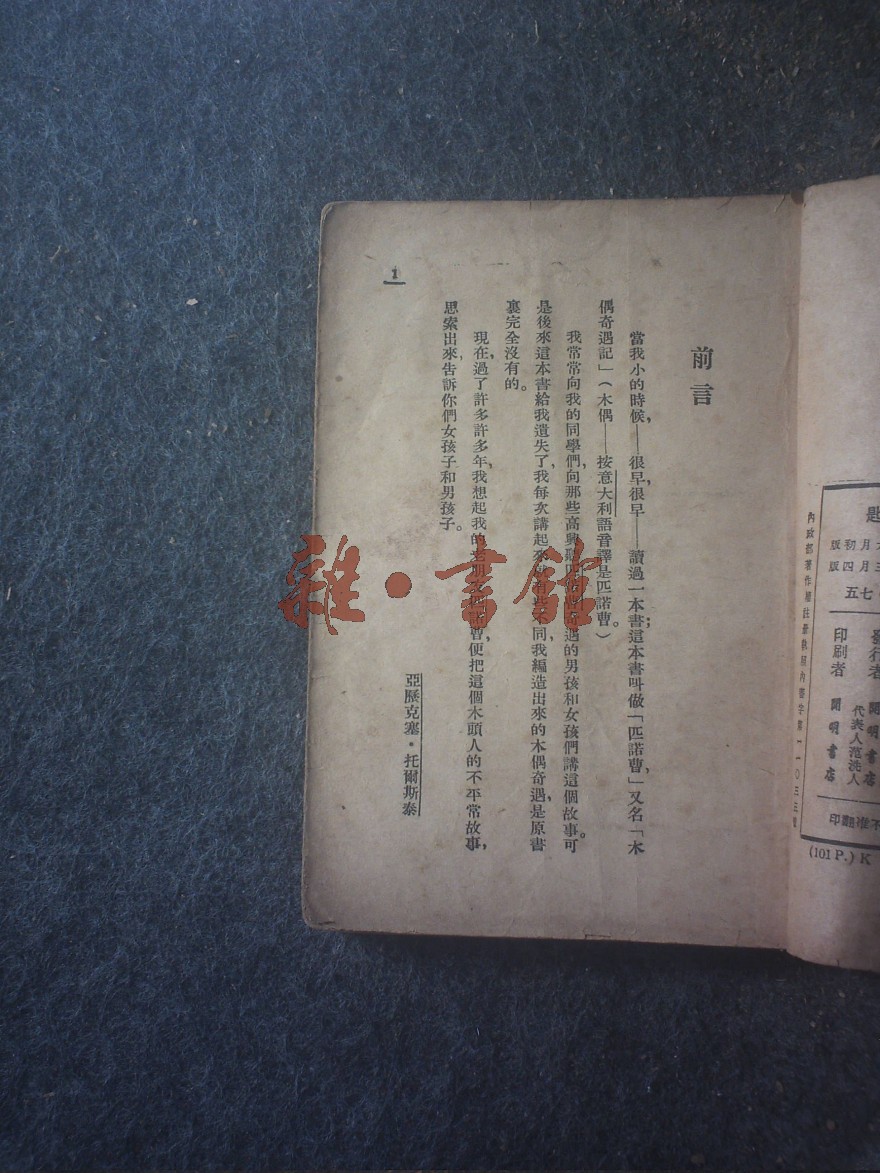 前言
當我小的時候，——很早，很早——讀過一本書；這本書叫做「匹諾曹」，又名「木
偶奇遇記」（木偶——按意大利語音譯是匹諾曹。）
我常常向我的同學們，向那些高興聽匹諾曹奇遇的男孩和女孩們講這個故事。可
是後來這本書給我遺失了，我每次講起來都有些不同，我編造出來的木偶奇遇，是原書
裏完全沒有的。
現在，過了許多許多年，我想起我的老朋友匹諾曹，便把這個木頭人的不平常故事，
思索出來告訴你們女孩子和男孩子。
亞歷克塞·托爾斯泰
1
雜·書館
月初版
月四版
七五
發行者
印刷者
開明書店
代表人范洗人
開明書店
不准翻印
(101 P.) K
內政部著作權註冊執照內警字第一一〇三三號